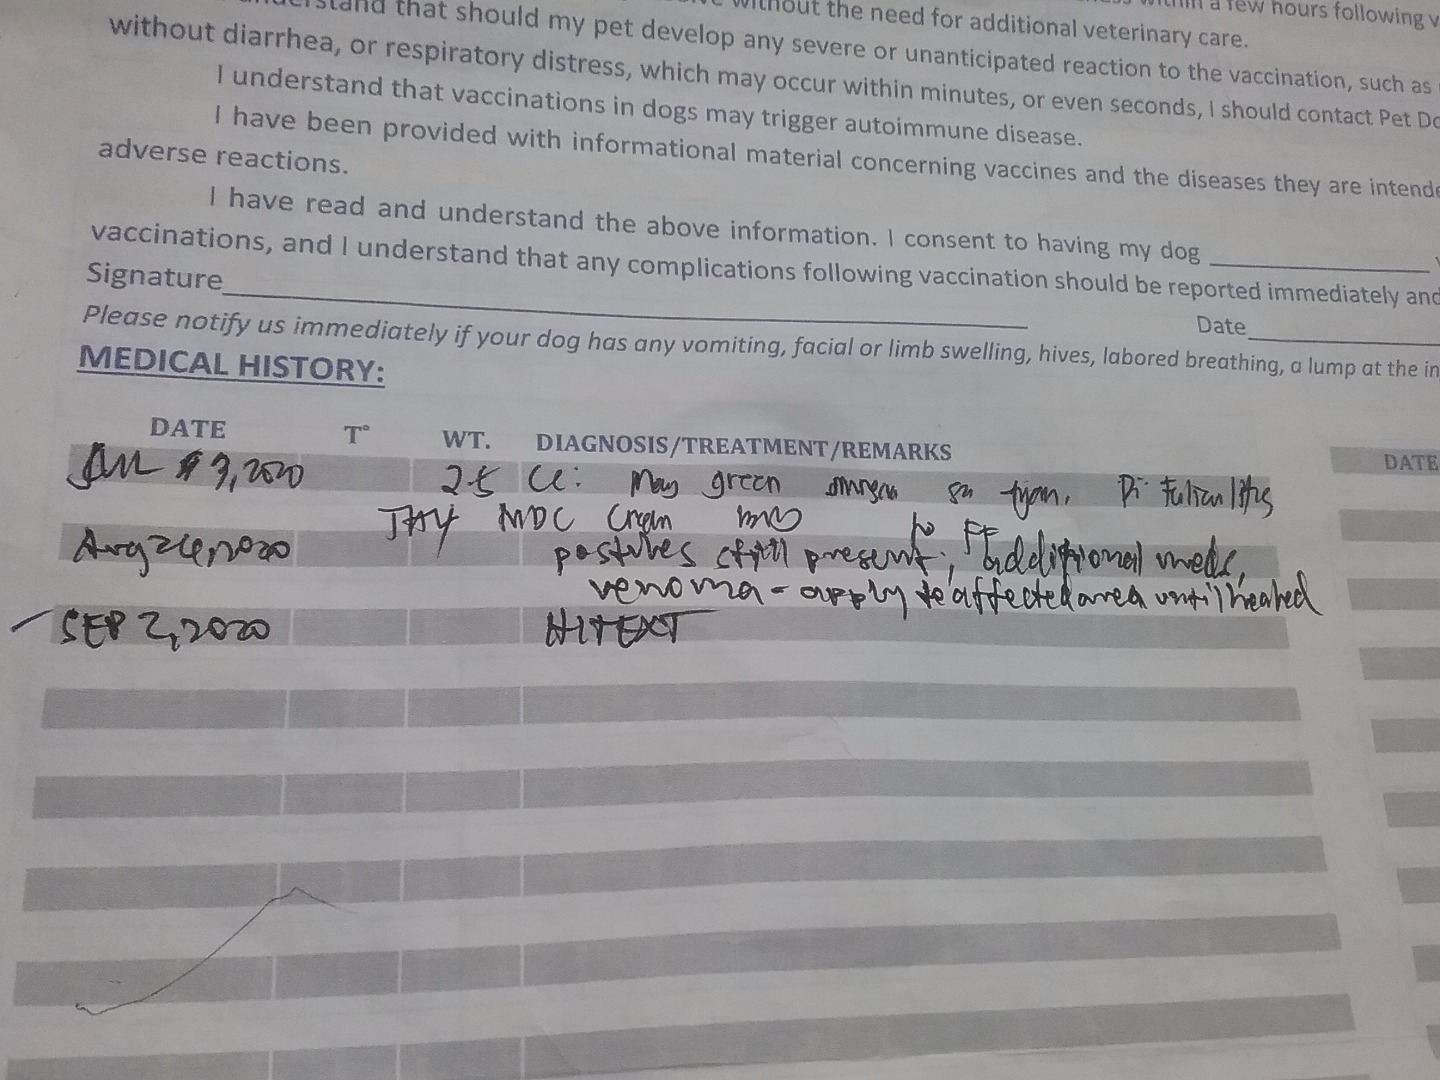 without the need for additional veterinary care.
within a few hours following
that should my pet develop any severe or unanticipated reaction to the vaccination, such as
without diarrhea, or respiratory distress, which may occur within minutes, or even seconds, I should contact Pet
I understand that vaccinations in dogs may trigger autoimmune disease.
I have been provided with informational material concerning vaccines and the diseases they are
adverse reactions.
I have read and understand the above information. I consent to having my dog
vaccinations, and I understand that any complications following vaccination should be reported immediately and
Signature
Date
Please notify us immediately if your dog has any vomiting, facial or limb swelling, hives, labored breathing, a lump at the
MEDICAL HISTORY:
DATE T° WT. DIAGNOSIS/TREATMENT/REMARKS DATE
9, 2020 2.5 CC: May green sa tyan.
MDC
2020 still present; additional meds,
venoma - apply to affected area until healed
SEP 2, 2020 HITEXT